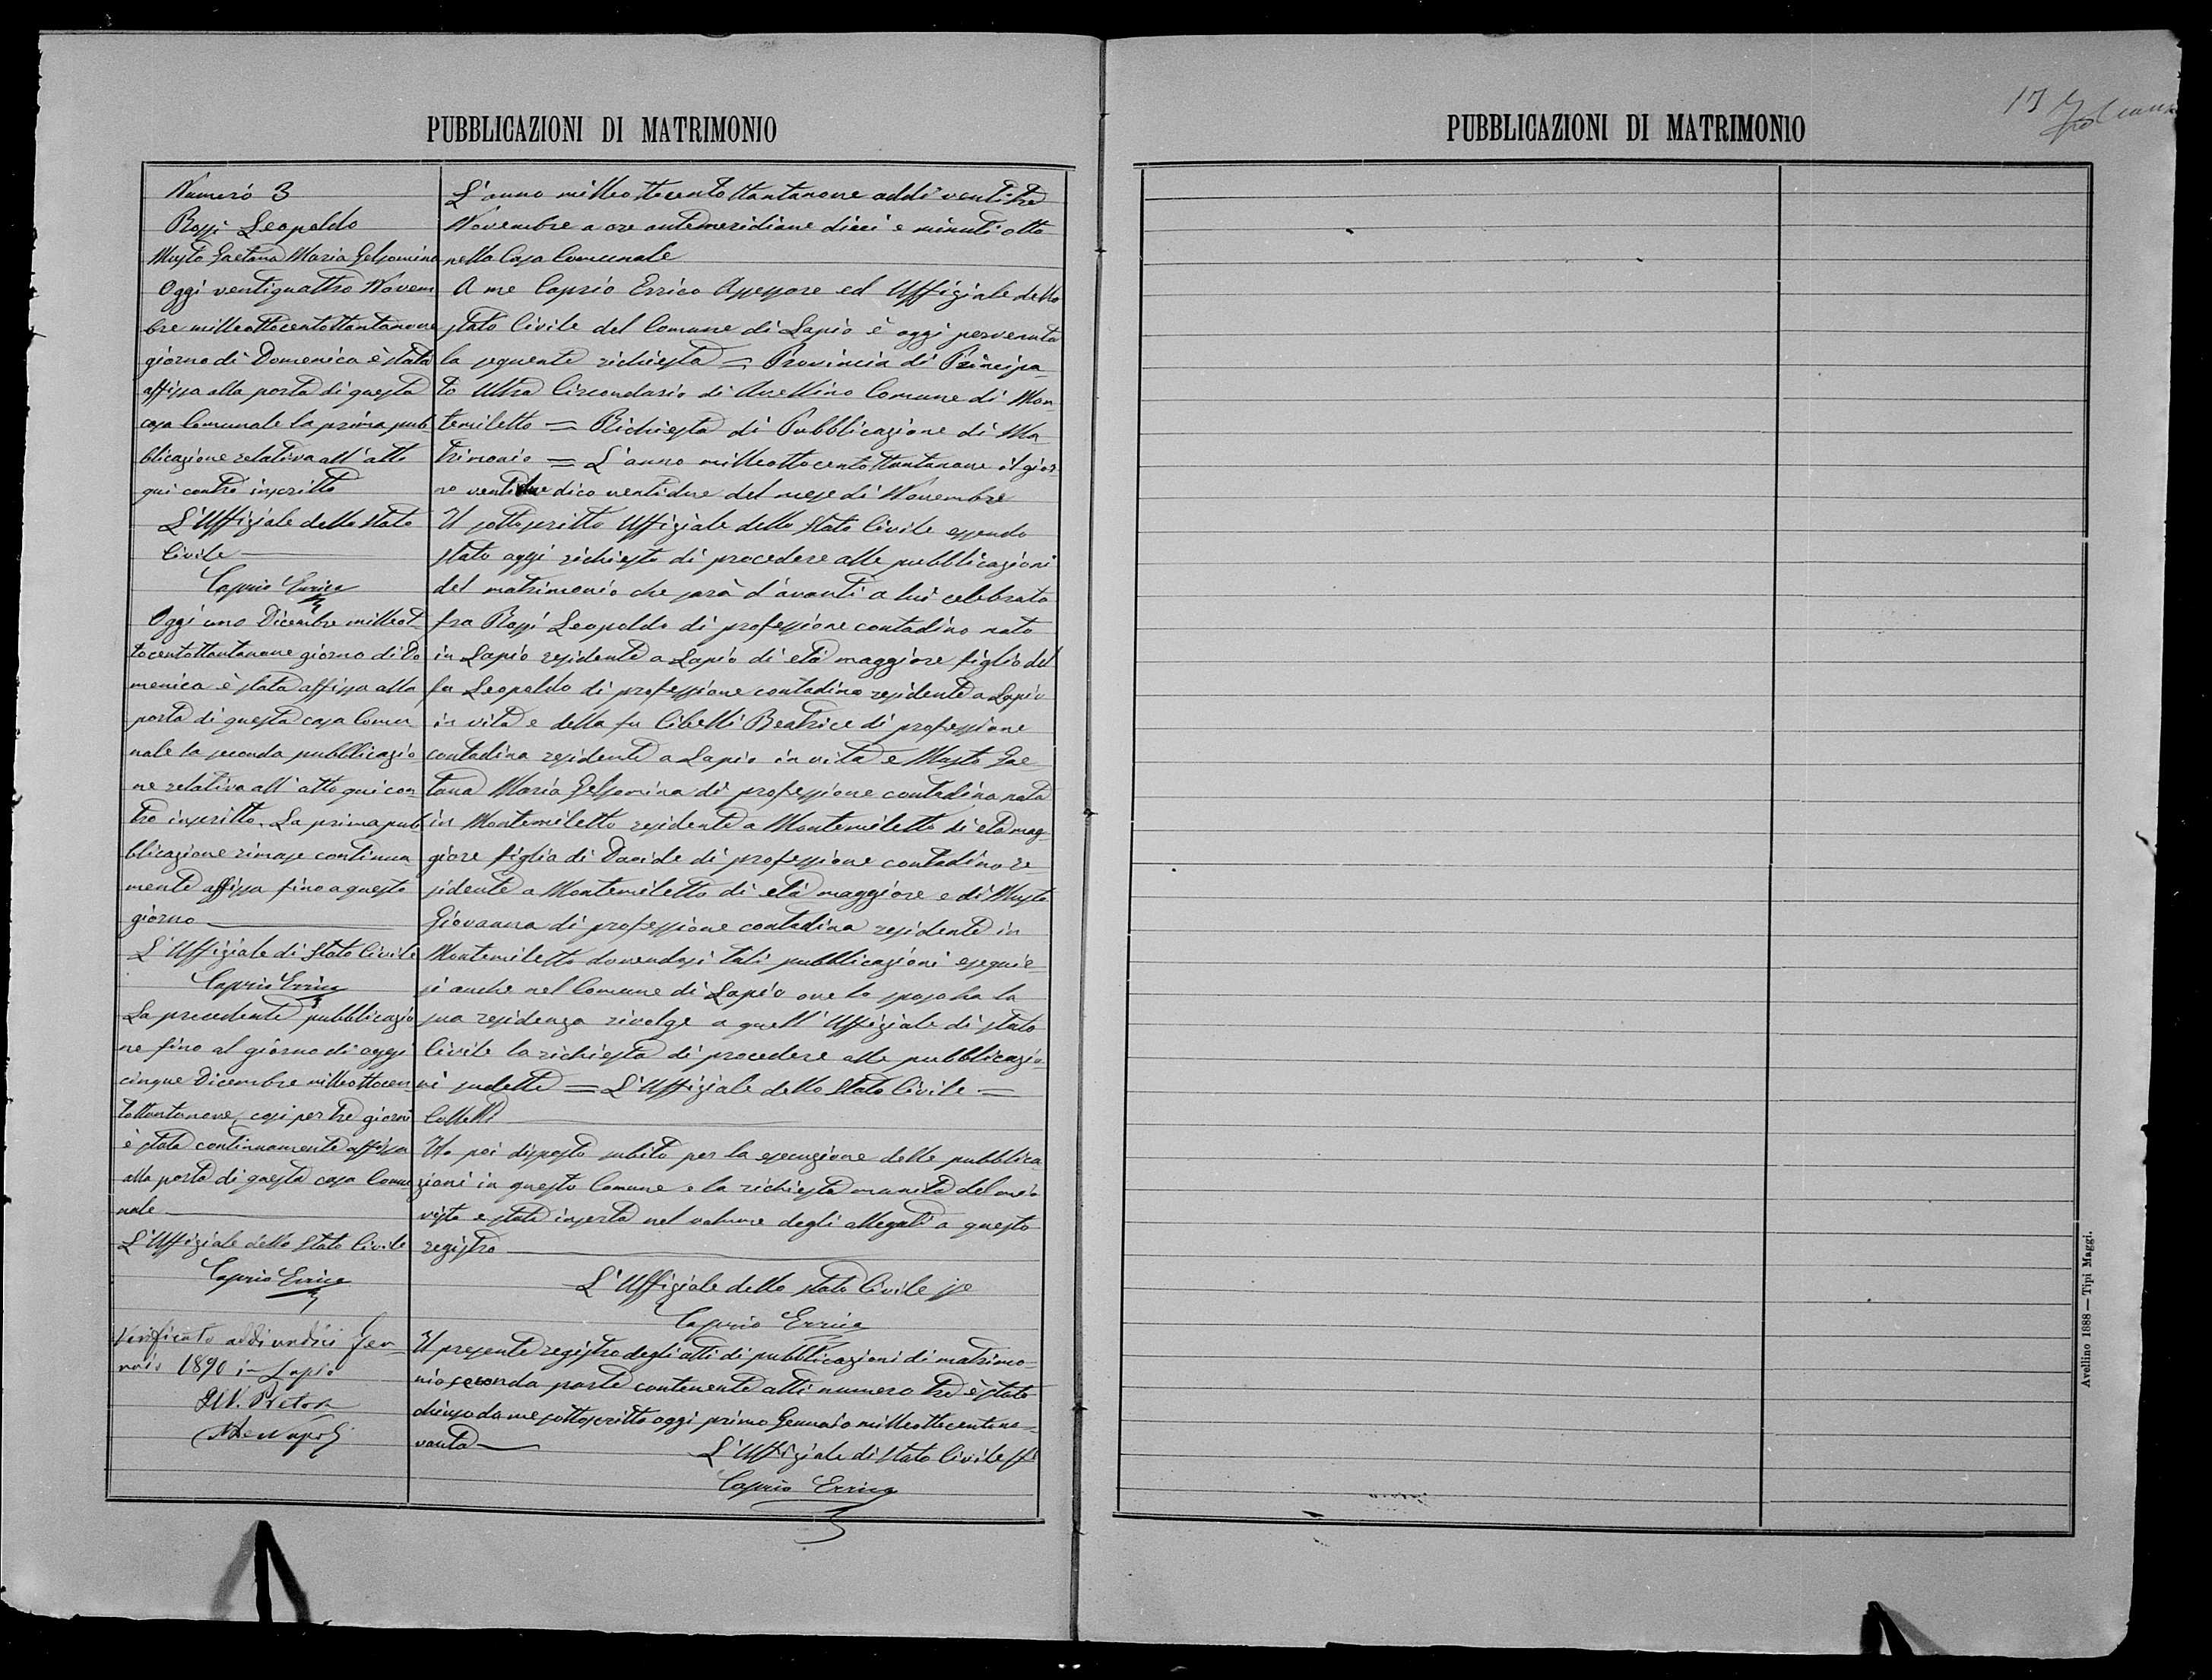 PUBBLICAZIONI DI MATRIMONIO
Numero 3
Rossi Leopoldo
Musto Gaetana Maria Gelsomina
Oggi ventiquattro Novem
bre milleottocentottantanove
giorno di Domenica è stata
affissa alla porta di questa
casa Comunale la prima pub
blicazione relativa all'atto
qui contro inscritto
L'Uffiziale dello Stato
Civile
Caprio Errico
Oggi uno Dicembre milleot
tocentottantanove giorno di Do
menica è stata affissa alla
porta di questa casa Comu
nale la seconda pubblicazio
ne relativa all'atto qui con
tro inscritto. La prima pub
blicazione rimase continua
mente affissa fino a questo
giorno
L'Uffiziale di Stato Civile
Caprio Errico
La precedente pubblicazio
ne fino al giorno di oggi
cinque Dicembre milleottocen
tottantanove, così per tre giorni
è stata continuamente affissa
alla porta di questa casa Comu
nale
L'Uffiziale dello Stato Civile
Caprio Errico
Verificato addi undici Gen
naio 1890 in Lapio
Pretore
L'anno milleottocentottantanove addi ventitre
Novembre a ore antemeridiane dieci e minuti otto
nella Casa Comunale
A me Caprio Errico Assessore ed Uffiziale dello
stato Civile del Comune di Lapio è oggi pervenuta
la seguente richiesta = Provincia di Principa
to Ultra Circondario di Avellino Comune di Mon
temiletto = Richiesta di Pubblicazione di Ma
trimonio = L'anno milleottocentottantanove il gior
no ventidue dico ventidue del mese di Novembre
Il sottoscritto Uffiziale dello Stato Civile essendo
stato oggi richiesto di procedere alle pubblicazioni
del matrimonio che sarà d'avanti a lui celebrato
fra Rossi Leopoldo di professione contadino nato
in Lapio residente a Lapio di età maggiore figlio del
fu Leopoldo di professione contadino residente a Lapio
in vita e della fu Cibelli Beatrice di professione
contadina residente a Lapio in vita e Musto Gae
tana Maria Gelsomina di professione contadina nata
in Montemiletto residente a Montemiletto di età mag
giore figlia di Davide di professione contadino re
sidente a Montemiletto di età maggiore e di Musto
Giovanna di professione contadina residente in
Montemiletto dovendosi tali pubblicazioni eseguir
si anche nel Comune di Lapio ove lo sposo ha la
sua residenza rivolge a quell'Uffiziale di stato
Civile la richiesta di procedere alle pubblicazio
ni sudette = L'Uffiziale dello Stato Civile =
Colletti
Ho poi disposto subito per la esecuzione delle pubblica
zioni in questo Comune e la richiesta munita del mio
visto e stata inserta nel volume degli allegati a questo
registro
L'Uffiziale dello stato Civile
Caprio Errico
Il presente registro degli atti di pubblicazioni di matrimo
nio seconda parte contenente atti numero tre è stato
chiuso da me sottoscritto oggi primo Gennaio milleottocentono
vanta
L'Uffiziale di Stato Civile
Caprio Errico
PUBBLICAZIONI DI MATRIMONIO
Avellino 1888 — Tipi Maggi.